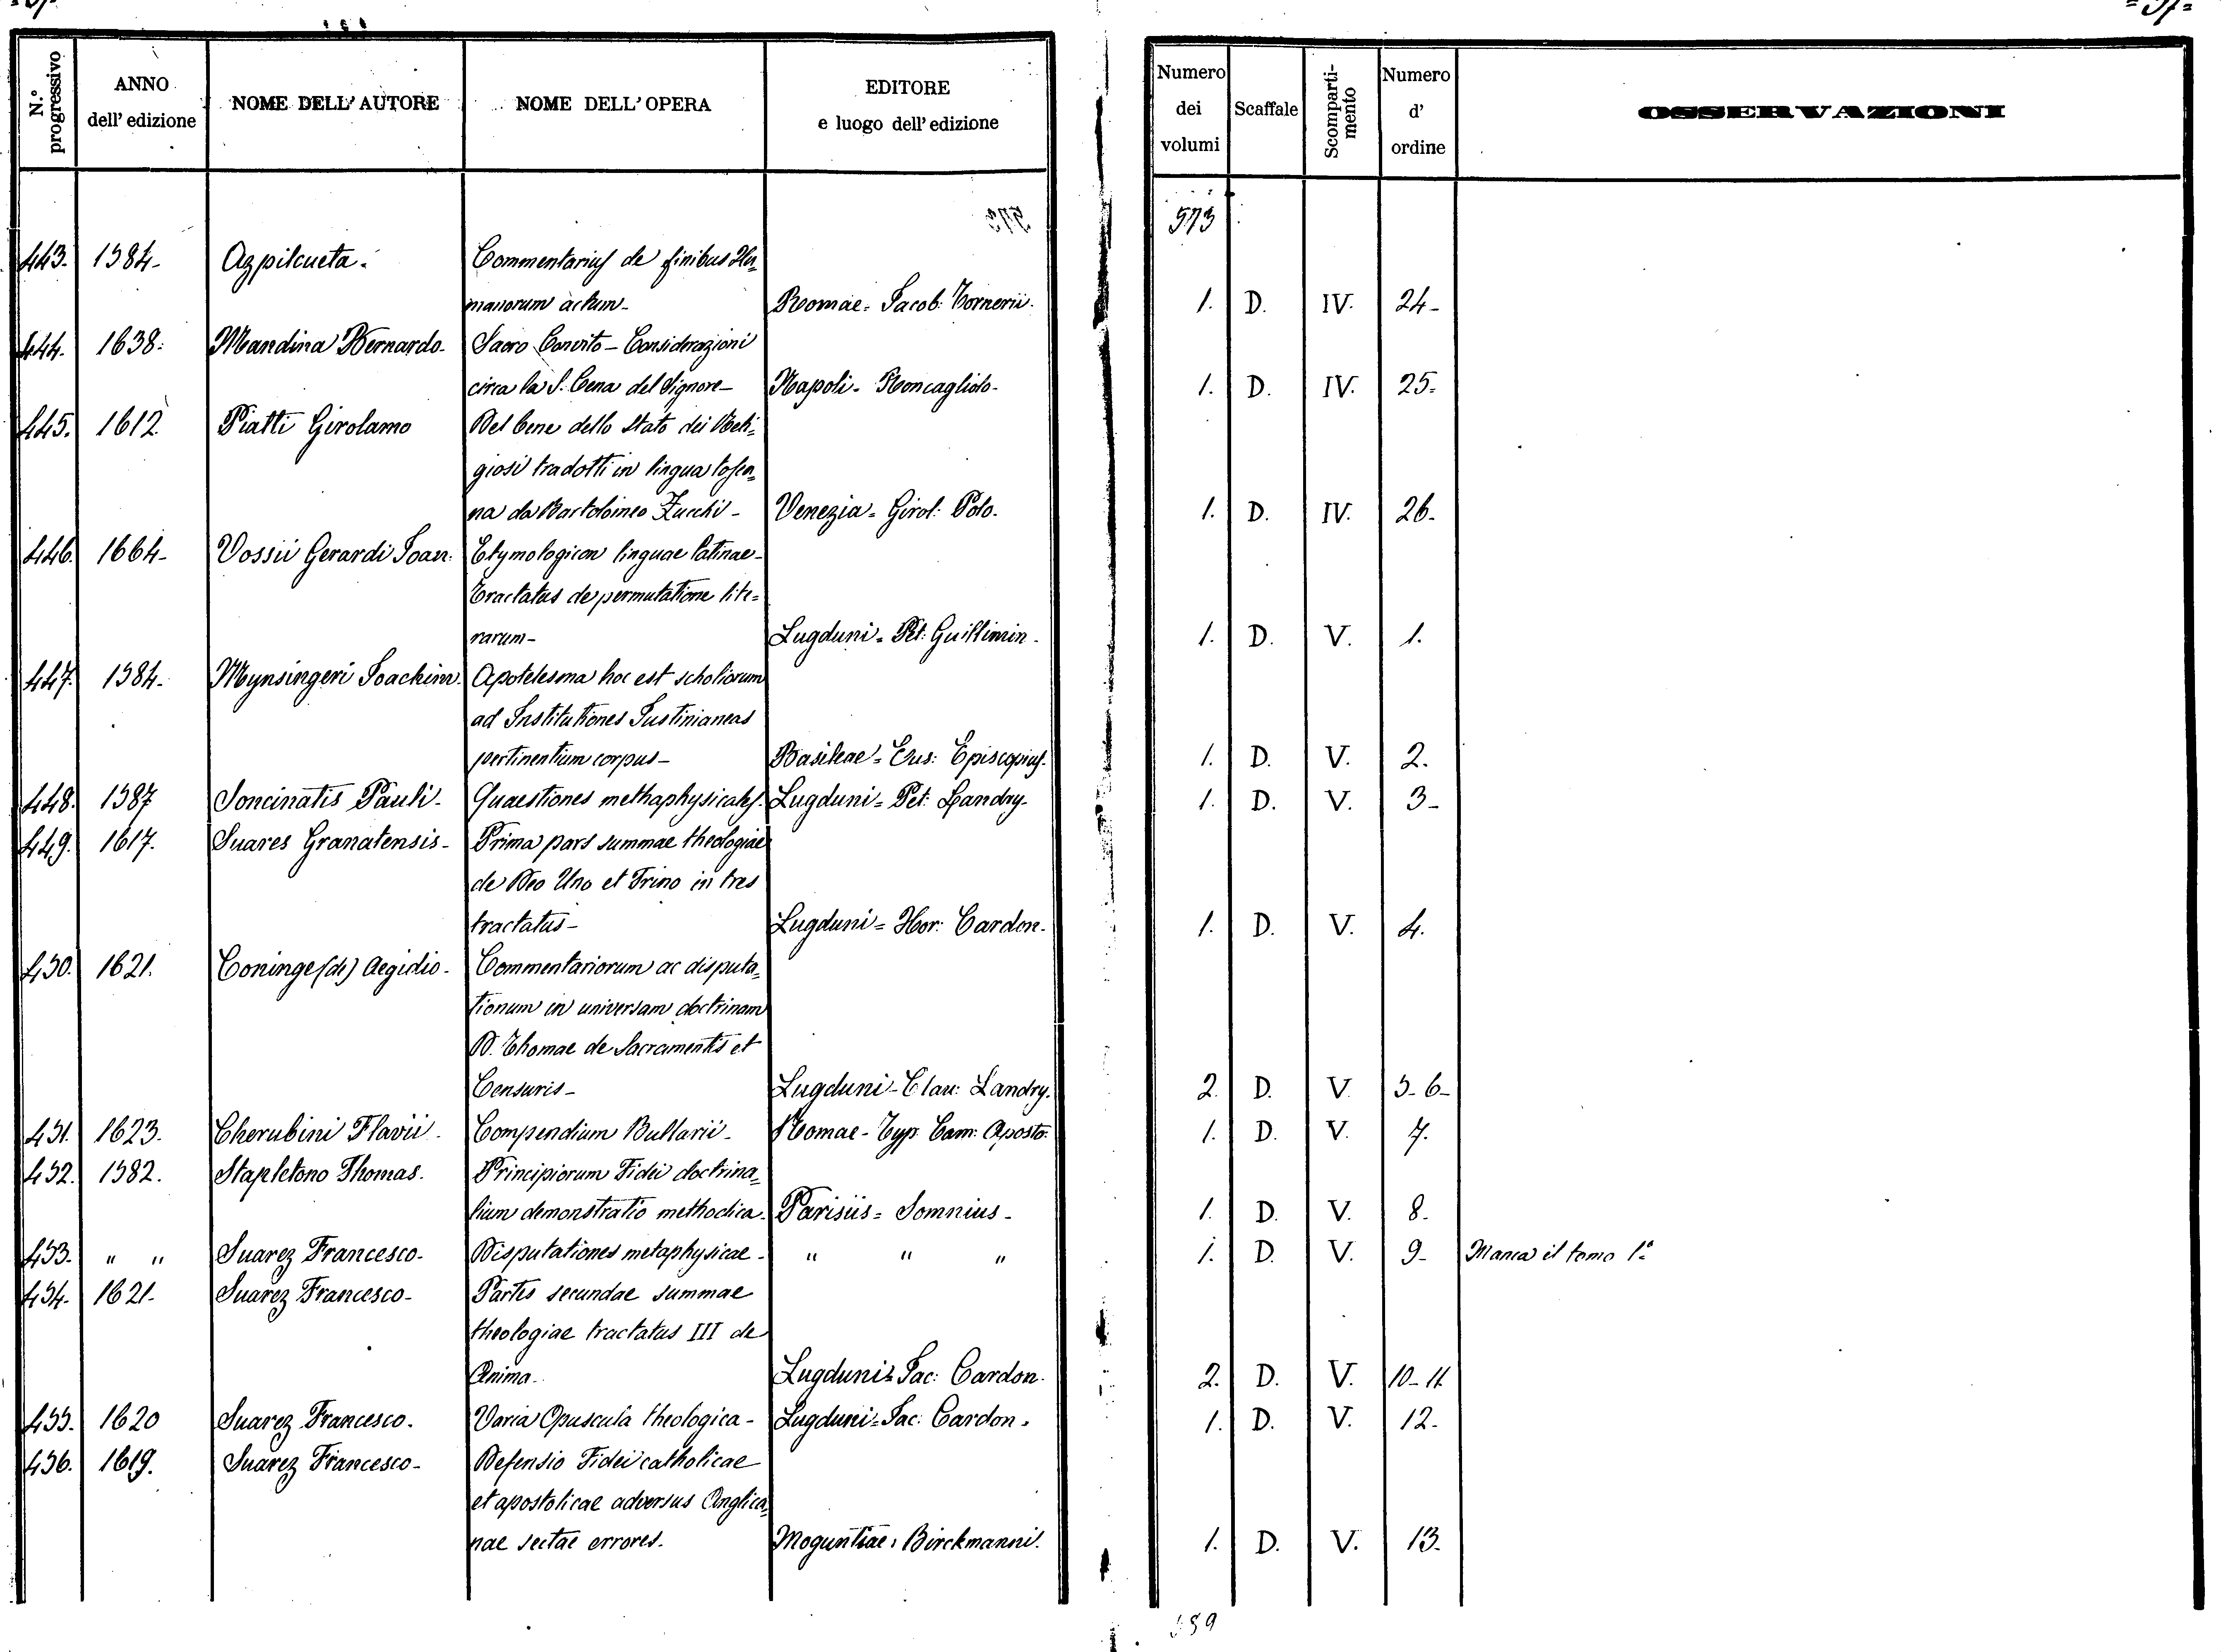 = 57 =
N.º progressivo | ANNO dell' edizione | NOME DELL' AUTORE | NOME DELL' OPERA | EDITORE e luogo dell' edizione | Numero dei volumi | Scaffale | Scomparti-mento | Numero d' ordine | OSSERVAZIONI
573
443. 1584- Azpilcueta. Commentarius de finibus Hu=
manorum actum- Romae= Jacob: Tornerii. 1. D. IV. 24-
444. 1638: Mandina Bernardo- Sacro Convito - Considerazioni
circa la S. Cena del Signore- Napoli- Roncagliolo- 1. D. IV. 25=
445. 1612 Piatti Girolamo Del bene dello Stato dei Reli=
giosi tradotti in lingua tosca=
na da Bartolomeo Zucchi- Venezia= Girol: Polo- 1. D. IV. 26-
446. 1664- Vossii Gerardi Joan: Etymologicon linguae latinae-
Tractatus de permutatione lite=
rarum- Lugduni= Pet: Guillimin- 1. D. V. 1.
447. 1584- Mynsingeri Joachim. Apotelesma hoc est scholiorum
ad Institutiones Justinianeas
pertinentium corpus- Basileae= Eus: Episcopius- 1. D. V. 2.
448. 1587 Soncinatis Pauli- Quaestiones methaphysicales. Lugduni= Pet: Landry- 1. D. V. 3-
449. 1617. Suares Granatensis- Prima pars summae theologiae
de Deo Uno et Trino in tres
tractatus- Lugduni= Hor: Cardon- 1. D. V. 4.
450. 1621. Coninge (de) Aegidio- Commentariorum ac disputa=
tionum in universam doctrinam
D. Thomae de Sacramentis et
Censuris- Lugduni- Clau: Landry. 2. D. V. 5-6-
451. 1623. Cherubini Flavii. Compendium Bullarii- Romae- Typ: Cam: Aposto: 1. D. V. 7.
452. 1582. Stapletono Thomas. Principiorum Fidei doctrina=
lium demonstratio methodica. Parisiis= Somnius- 1. D. V. 8-
453. " " Suarez Francesco- Disputationes metaphysicae- " " " 1. D. V. 9- Manca il tomo 1º
454. 1621- Suarez Francesco- Partis secundae summae
theologiae tractatus III de
Anima- Lugduni= Jac: Cardon- 2. D. V. 10-11
455. 1620 Suarez Francesco- Varia Opuscula theologica- Lugduni= Jac: Cardon- 1. D. V. 12-
456. 1619. Suarez Francesco- Defensio Fidei catholicae
et apostolicae adversus Anglica=
nae sectae errores. Moguntiae: Birckmanni. 1. D. V. 13-
589